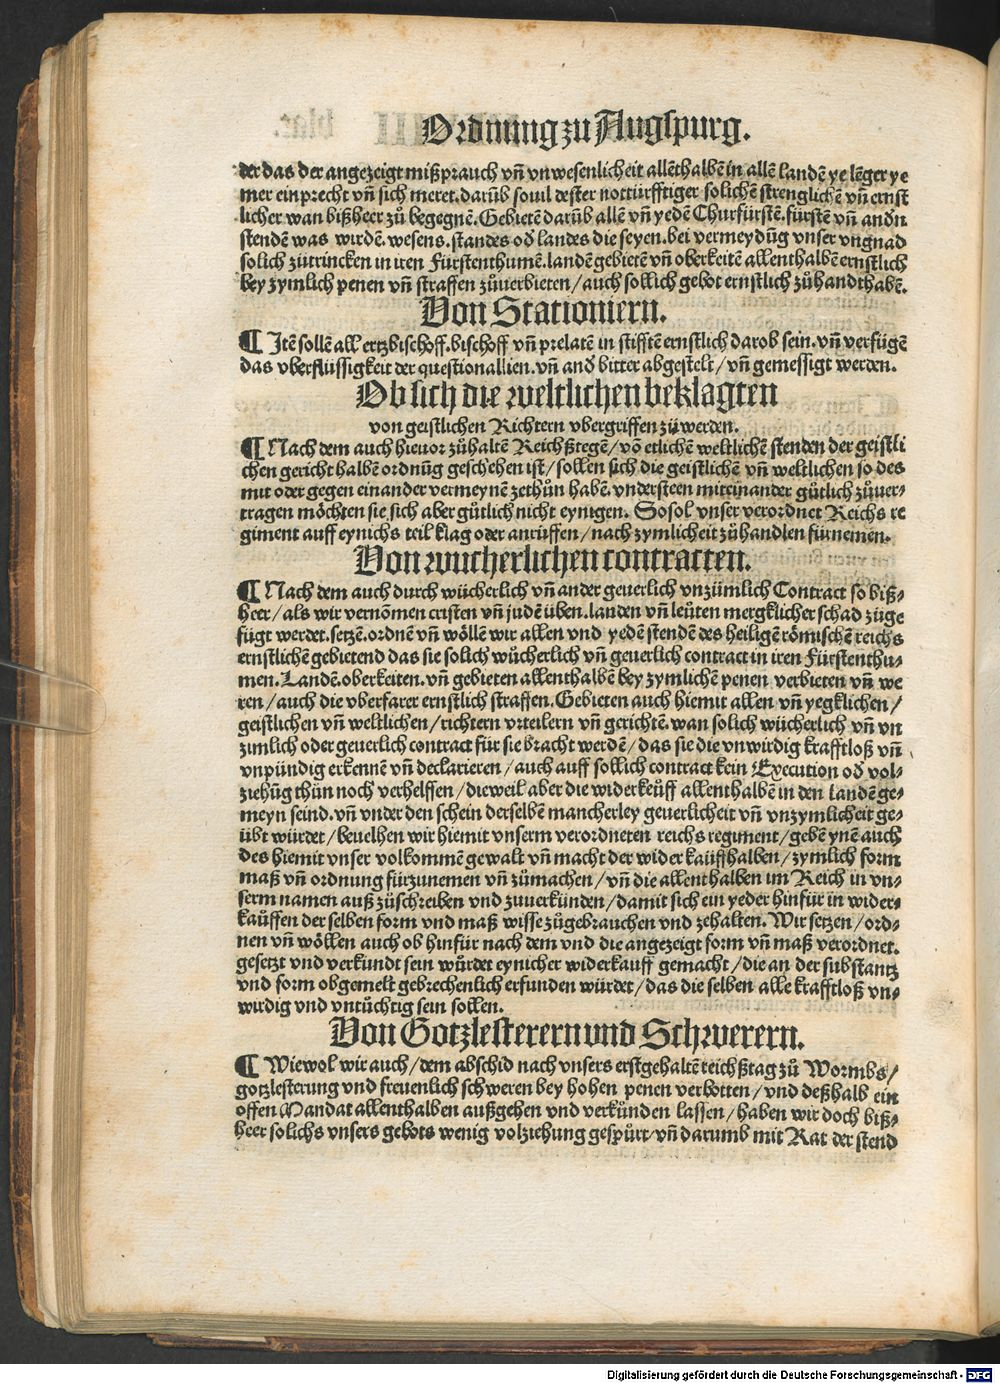 Ordnung zu Augspurg.
der das der angezeigt mißprauch vñ vnwesenlicheit allēthalbē in allē landē ye lēger ye
mer einprecht vñ sich meret. darūb souil dester notturfftiger solichē strenglichē vñ ernst
licher wan bißheer zů begegnē. Gebietē darūb allē vñ yedē Churfürstē. fürstē vñ andn̄
stendē was wirdē. wesens. standes od̄ landes die seyen. bei vermeydūg vnser vngnad
solich zůtrincken in iren Fürstenthumē. landē gebietē vñ oberkeitē allenthalbē ernstlich
bey zymlich penen vñ straffen zůuerbieten / auch sollich gebot ernstlich zůhandthabē.
Von Stationiern.
¶ Itē sollē all ertzbischoff. bischoff vñ prelatē in stifftē ernstlich darob sein. vñ verfügē
das vberflüssigkeit der questionallien. vñ and̄ bitter abgestelt / vñ gemessigt werden.
Ob sich die weltlichen beklagten
von geistlichen Richtern vbergriffen zůwerden.
¶ Nach dem auch hieuor zůhaltē Reichßtegē / vō etlichē weltlichē stenden der geistli
chen gericht halbē ordnūg geschehen ist / sollen sich die geistlichē vñ weltlichen so des
mit oder gegen einander vermeynē zethůn habē. vndersteen miteinander gůtlich zůuer⸗
tragen möchten sie sich aber gůtlich nicht eynigen. So sol vnser verordnet Reichs re
giment auff eynichs teil klag oder anrüffen / nach zymlicheit zůhandlen fürnemen.
Von wucherlichen contracten.
¶ Nach dem auch durch wücherlich vñ ander geuerlich vnzümlich Contract so biß⸗
heer / als wir vernōmen cristen vñ judē üben. landen vñ leüten mergklicher schad zůge
fügt werdet. setzē. ordnē vñ wöllē wir allen vnd yedē stendē des heiligē römischē reichs
ernstlichē gebietend das sie solich wůcherlich vñ geuerlich contract in iren Fürstenthu⸗
men. Landē. oberkeiten. vñ gebieten allenthalbē bey zymlichē penen verbieten vñ we
ren / auch die vberfarer ernstlich straffen. Gebieten auch hiemit allen vñ yegklichen /
geistlichen vñ weltlichen / richtern vrteilern vñ gerichtē. wan solich wücherlich vñ vn
zimlich oder geuerlich contract für sie bracht werdē / das sie die vnwirdig krafftloß vñ
vnpündig erkennē vñ declarieren / auch auff sollich contract kein Execution od̄ vol⸗
ziehūg thün noch verhelffen / dieweil aber die widerkeüff allenthalbē in den landē ge⸗
meyn seind. vñ vnder den schein derselben mancherley geuerlicheit vñ vnzymlicheit ge⸗
übt würdet / beuelhen wir hiemit vnserm verordneten reichs regiment / gebē ynē auch
des hiemit vnser volkommē gewalt vñ macht der widerkaüffhalben / zymlich form
maß vñ ordnung fürzunemen vñ zůmachen / vñ die allenthalben im Reich in vn⸗
serm namen auß zůschreiben vnd zuuerkünden / damit sich ein yeder hinfür in wider⸗
kaüffen der selben form vnd maß wisse zůgebrauchen vnd zehalten. Wir setzen / ord⸗
nen vñ wöllen auch ob hinfür nach dem vnd die angezeigt form vñ maß verordnet.
gesetzt vnd verkundt sein würdet eynicher widerkauff gemacht / die an der substantz
vnd form obgemelt gebrechenlich erfunden würdet / das die selben alle krafftloß vn⸗
wirdig vnd vntüchtig sein sollen.
Von Gotzlesterern und Schwerern.
¶ Wiewol wir auch / dem abschid nach vnsers erstgehaltē reichßtag zů Wormbs /
gotzlesterung vnd freuenlich schweren bey hohen penen verbotten / vnd deßhalb ein
offen Mandat allenthalben außgehen vnd verkünden lassen / haben wir doch biß⸗
heer solichs vnsers gebots wenig volziehung gespürt / vñ darumb mit Rat der stend
Digitalisierung gefördert durch die Deutsche Forschungsgemeinschaft - DFG